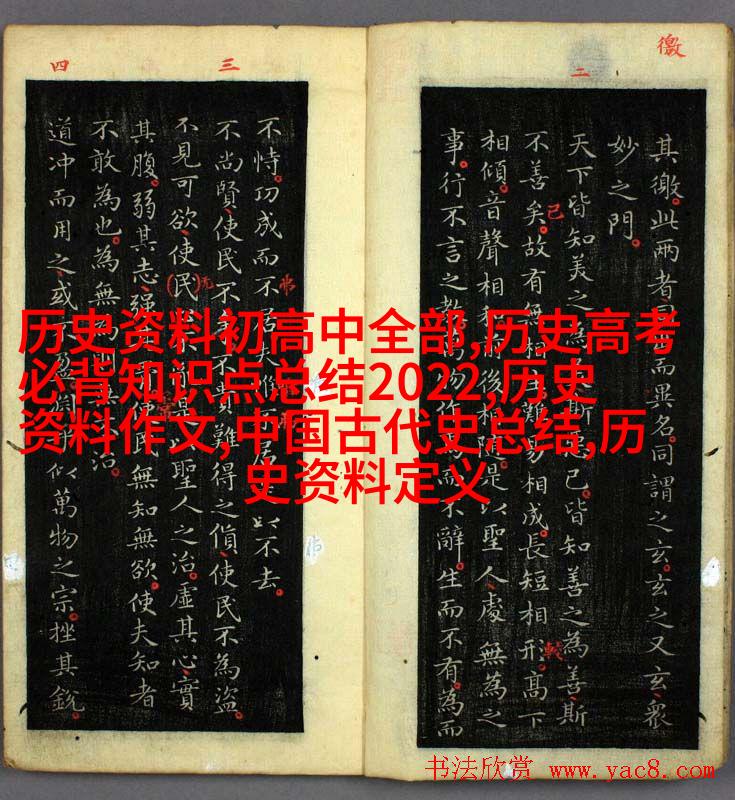 徼
二
其徼。此兩者而異名。同謂之玄。玄之又玄、衆
妙之門。
天下皆知美之為斯已。皆知善之為善斯
不善矣。故有無相難易相成。長短相形。高下
相傾。音聲相後相是以聖人處無為之
事。行不言之教萬物作而不辭。生而不有。為而
三
四
不恃。功成而不居夫不以不去。
不尚賢、使民不不貴難得之貨、使民不為盜。
不見可欲、使民以聖人之治。虛其心、實
其腹。弱其志、強使民無知無欲。使夫知者
不敢為也。為無治。
道冲而用之、或不盈似萬物之宗。挫其銳。
历史资料初高中全部,历史高考
必背知识点总结2022,历史
资料作文,中国古代史总结,历
史资料定义
书法欣赏 www.yac8.com